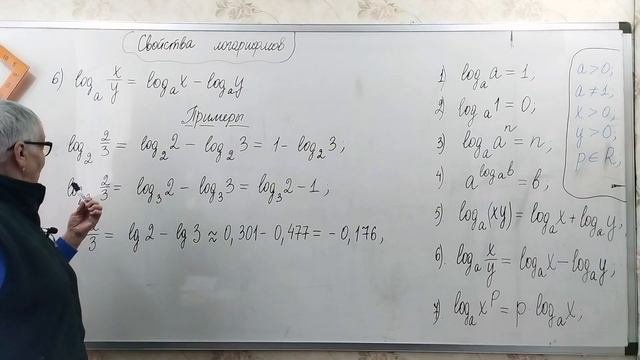 Свойства логарифмов
6) log_a x/y = log_a x − log_a y
Примеры
log_2 2/3 = log_2 2 − log_2 3 = 1 − log_2 3,
2/3 = log_3 2 − log_3 3 = log_3 2 − 1,
3 = lg 2 − lg 3 ≈ 0,301 − 0,477 = −0,176,
1) log_a a = 1;
2) log_a 1 = 0;
3) log_a a^n = n;
4) a^{log_a b} = b;
5) log_a (xy) = log_a x + log_a y,
6) log_a x/y = log_a x − log_a y,
7) log_a x^p = p log_a x;
a > 0;
a ≠ 1;
x > 0,
y > 0;
p ∈ R,